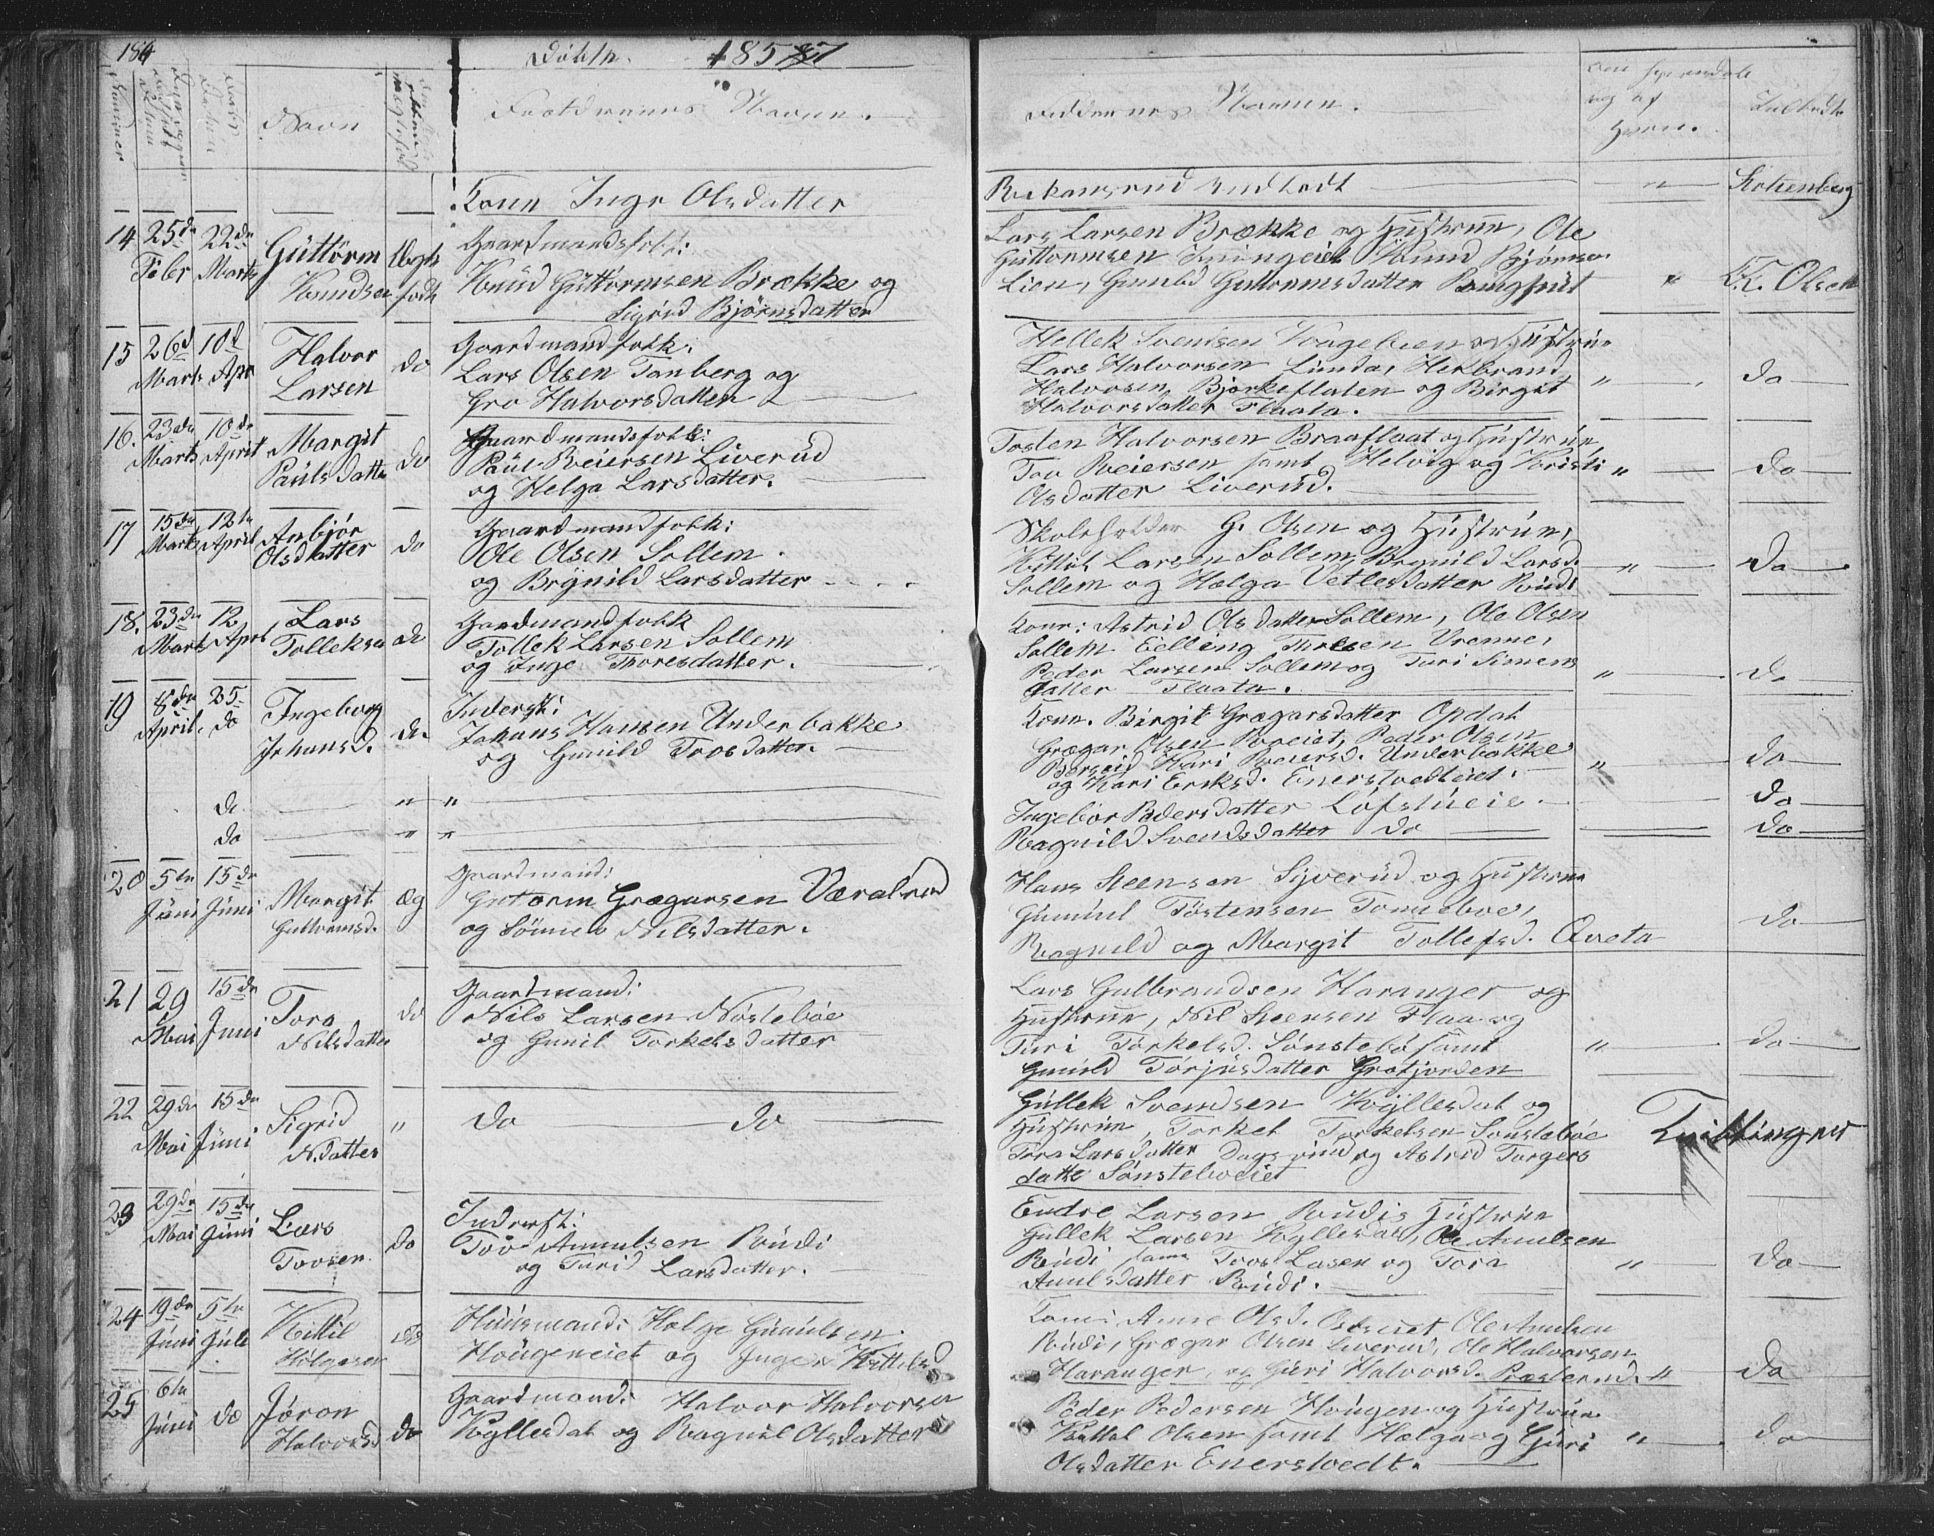 184
Døbte. 1857
Nummer
Navn
Forældrenes Navne.
Faddernes Navne.
og af
hvem.
Kone Inge Olsdatter
Indtedt " Rotenberg
14 25de Feber 22de Marts Guttorm Knudsen Ægte født
Gaardmandsfolk:
Knud Guttormsen Brække og
Sigrid Bjørnsdatter
Lars Larsen Brække og Hustrue, Ole
Guttormsen Knud Bjørnsen
Lien, Gunild Guttormsdatter " K. T. Olsen
15 26d Marts 10d Apr Halvor Larsen do
Gaardmandfolk:
Lars Olsen Tanberg og
Gro Halvorsdatter
Hellek Svensen og Hustrue
Lars Halvorsen Linda, Herbrand
Halvosen Bjørkeflaten og Birgit " do
Halvorsdatter Flaata.
16. 23de Marts 10de April Margit Paulsdatte do
Gaardmandsfolk:
Paul Reiersen Liverud
og Helga Larsdatter.
Tosten Halvorsen Braaflaat og Hustrue,
Tov Reiersen samt Helvig og Kristi " do
Olsdatter Liverud.
17 15de Marts 12te April Anbjør Olsdatter do
Gaardmandfolk:
Ole Olsen Sollem
og Brynild Larsdatter
Skoleholder G. Olsen og Hustrue,
Kittil Larsen Sollem, Brynild Larsd. " do
Sollem og Helga Vetlesdatter Rudi
18. 23de Marts 12 Aprl Lars Tolleksen do
Gardmandfolk
Tollek Larsen Sollem
og Inge Thoresdatter.
Kone: Astrid Olsdatter Sollem, Ole Olsen
Sollem Elling Thorsen Vrenne,
Peder Larsen Sollem og Turi Simens " do
datter Flaata.
19 8de April 25 do Ingeborg Johansd. do
Inderst:
Johans Hansen Underbakke
og Gunild Trosdatter.
Kone. Birgit Grægarsdatter Opdal
Grægar Olsen Roeiet, Peder Olsen
Kari Reiersd. Underbakke " do
og Kari Eriksd. Enerstvedteiet.
do " " Ingebor Pedersdatter Løfstueie do
do " " Ragnild Svendsdatter do do
20 5te Juni 15de Juni Margit Guttormsd. Æg
Gaardmand:
Gutorm Grægarsen Væralrud
og Sønnev Nilsdatter.
Hans Steensen Syverud og Hustrue
Gunnul Tostensen Tonneboe, do
Ragnild og Margit Tollefsd. Aveta
21 29 Mai 15de Juni Tora Nilsdatter do
Gaardmand:
Nils Larsen Nøsteboe
og Gunil Torkelsdatter
Lars Gulbrandsen Haranger og
Hustrue, Nil Steensen Flaa og
Turi Torkelsd. Sønstebø samt " do
Gunild Torjusdatter Grøtjorden
22 29de Mai 15de Juni Sigrid N.datter "
do do
Gullek Svendsen Kyllesdal og
Hustrue, Torkel Torkelsen Sønsteboe Tvillinger
Tora Larsdatter Dagsrud og Astrid Torgers
datte Sønsteboeiet
23 29de Mai 15de Juni Lars Tovsen do
Inderst:
Tov Amulsen Rudi
og Turid Larsdatter.
Endre Larsen Rudis Hustrue
Gullek Larsen Kyllesdal, Ole Amulsen
Rudi samt Tov Larsen og Tora " do
Amulsdatter Rudi.
24 19de Juni 5te Jule Kittil Helgesen do
Huusmand: Helge Gunulsen
Hougeneiet og Inge Kittelsd
Kone: Anne Olsd. Ole Amulsen
Rudi, Græger Olsen Liverud, Ole Halvorsen
Haranger, og Guri Halvorsd. Præsterud. " do
25 6te Juni do Jøron Halvorsd do
Gaardmand: Halvor Halvorsen
Kyllesdal og Ragnil Olsdatter
Peder Pedersen Hougen og Hustrue
Kittel Olsen samt Helga og Guri " do
Olsdatter Enerstvedt.